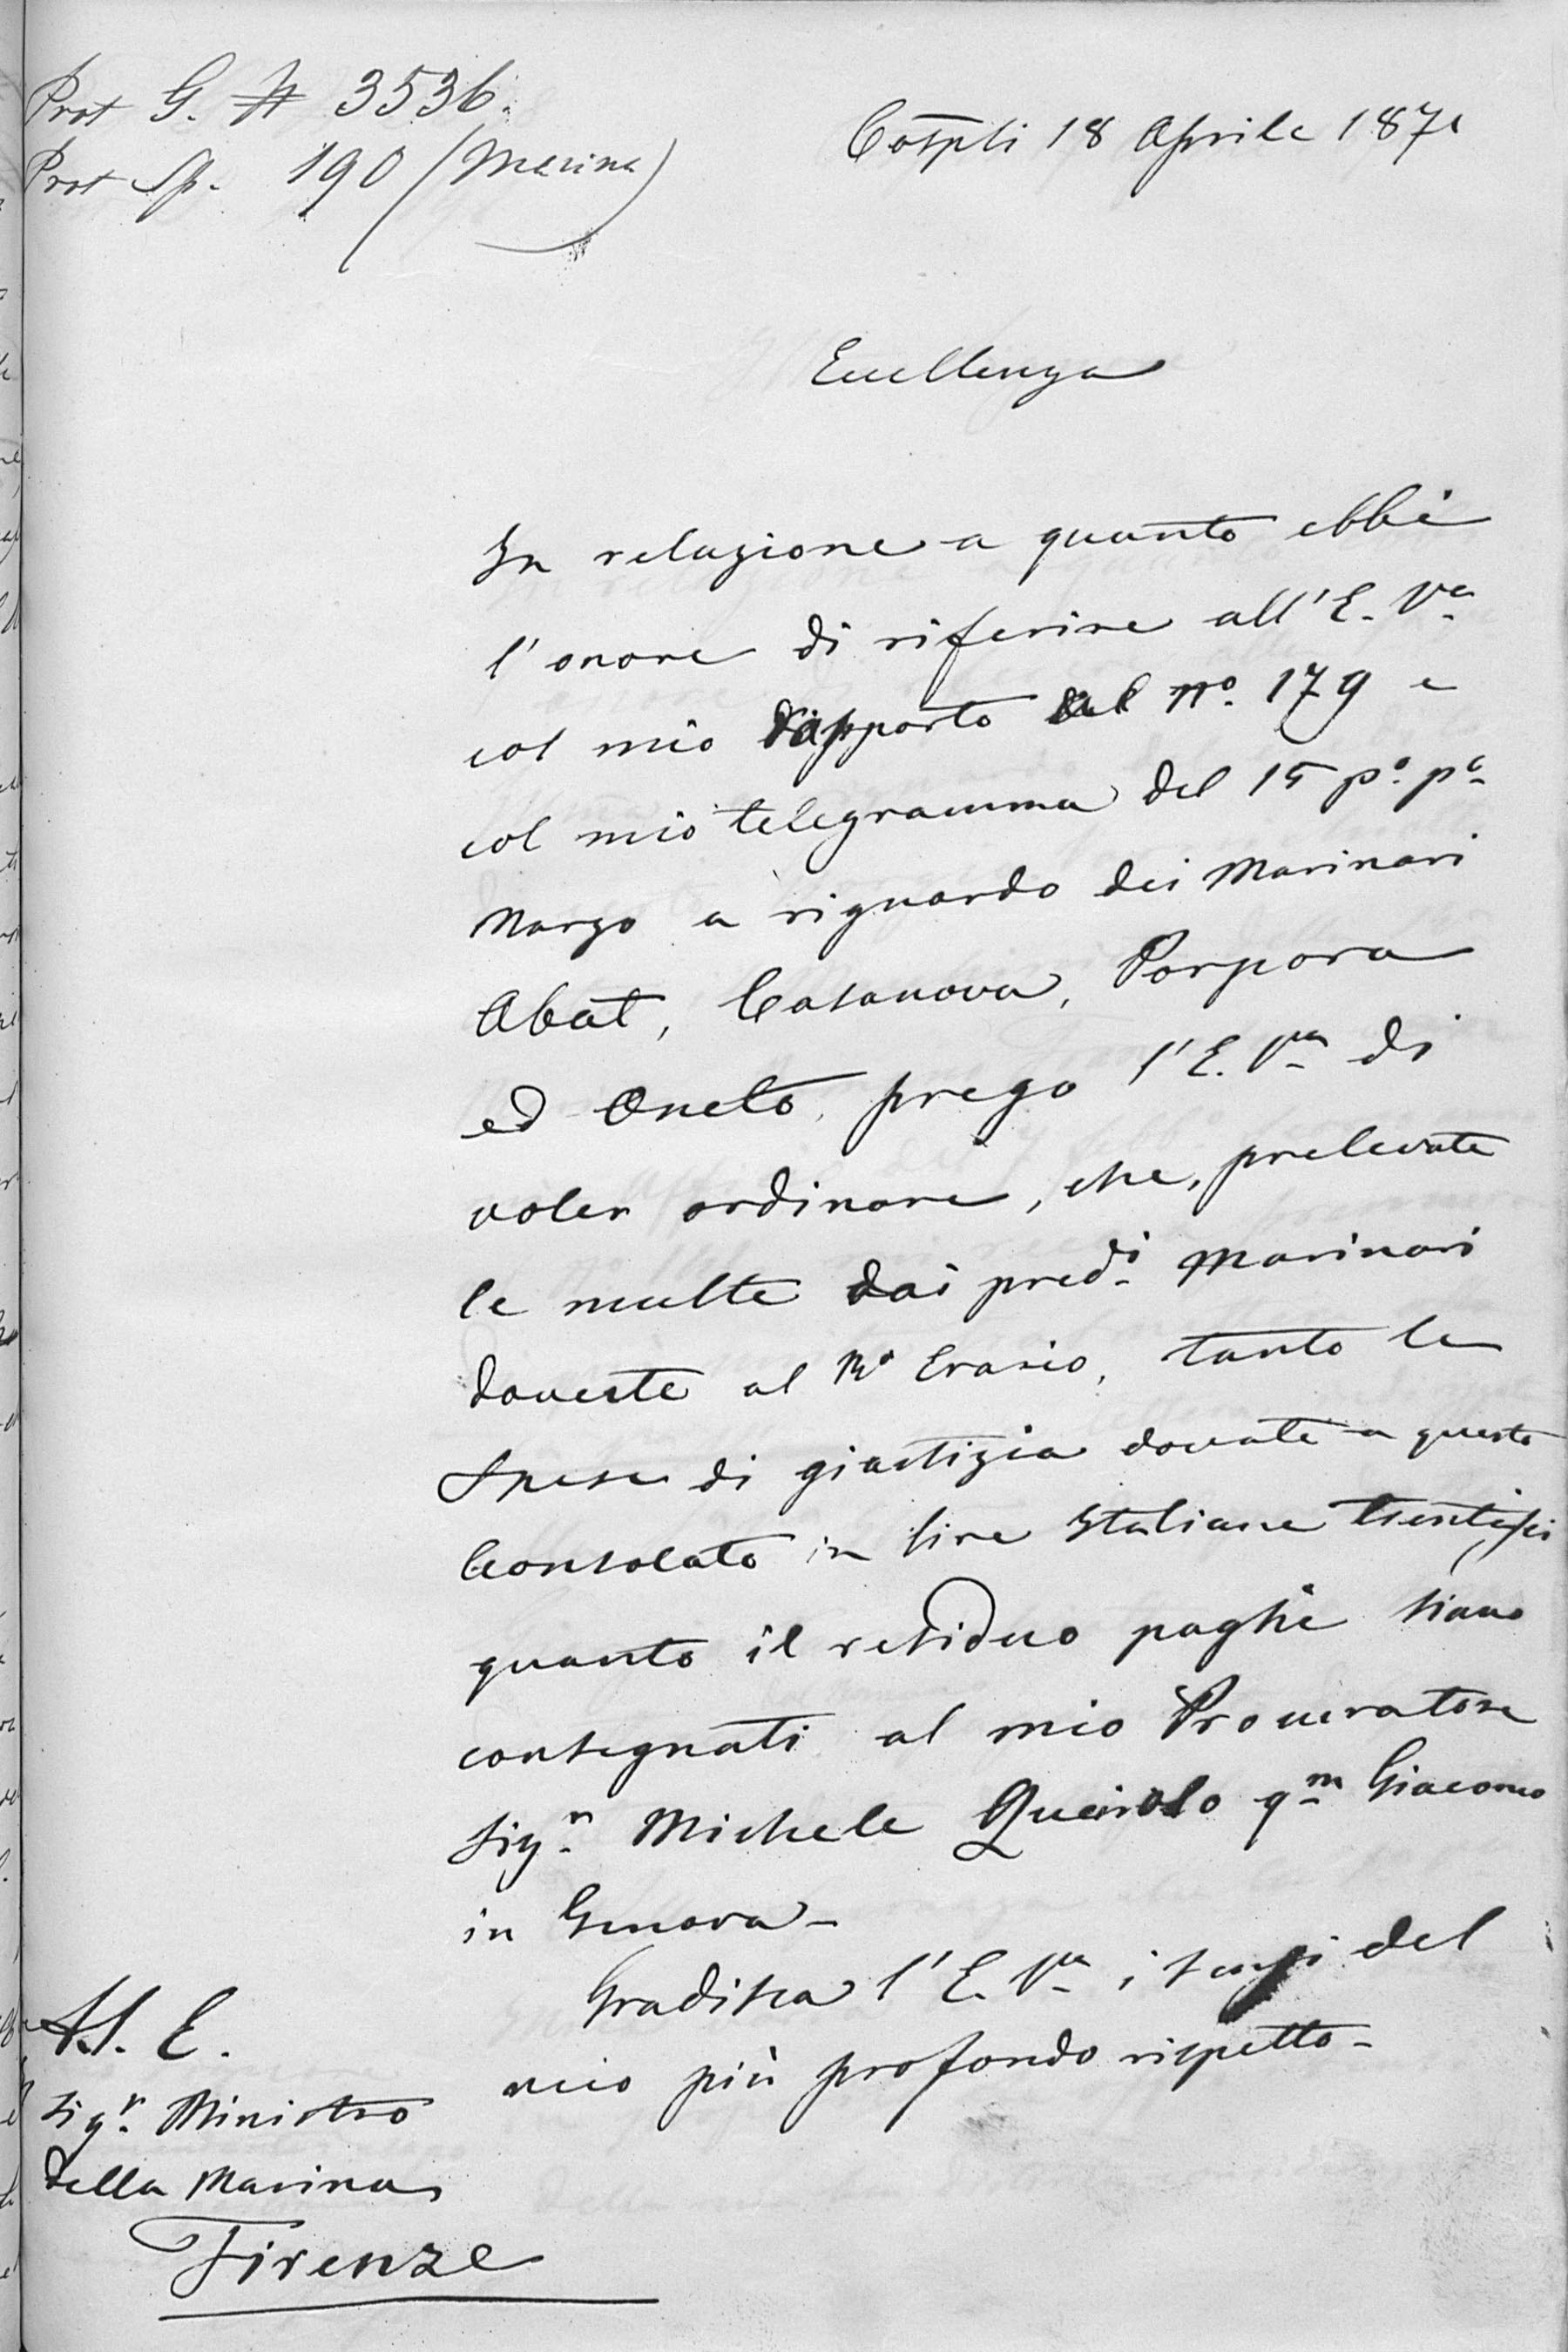 Prot G. N 3536.
Prot Sp. 190 (Marina)
Cospli 18 Aprile 1871
Eccellenza
In relazione a quanto ebbi
l'onore di riferire all'E. Va
col mio rapporto al No. 179 e
col mio telegramma del 15 po. po.
Marzo a riguardo dei Marinari
Abat, Casanova, Porpora
ed Oneto, prego l'E. Va di
voler ordinare, che, prelevate
le multe dai predi. Marinari
dovute al Ro Erario, tanto le
Spese di giustizia dovute a questo
Consolato in lire Italiane
quanto il residuo paghe siano
consegnati al mio Procuratore
Sigr. Michele Queirolo qm Giacomo
in Genova -
Gradisca l'E. Va i sensi del
mio più profondo rispetto -
A S. E.
Sigr. Ministro
della Marina
Firenze